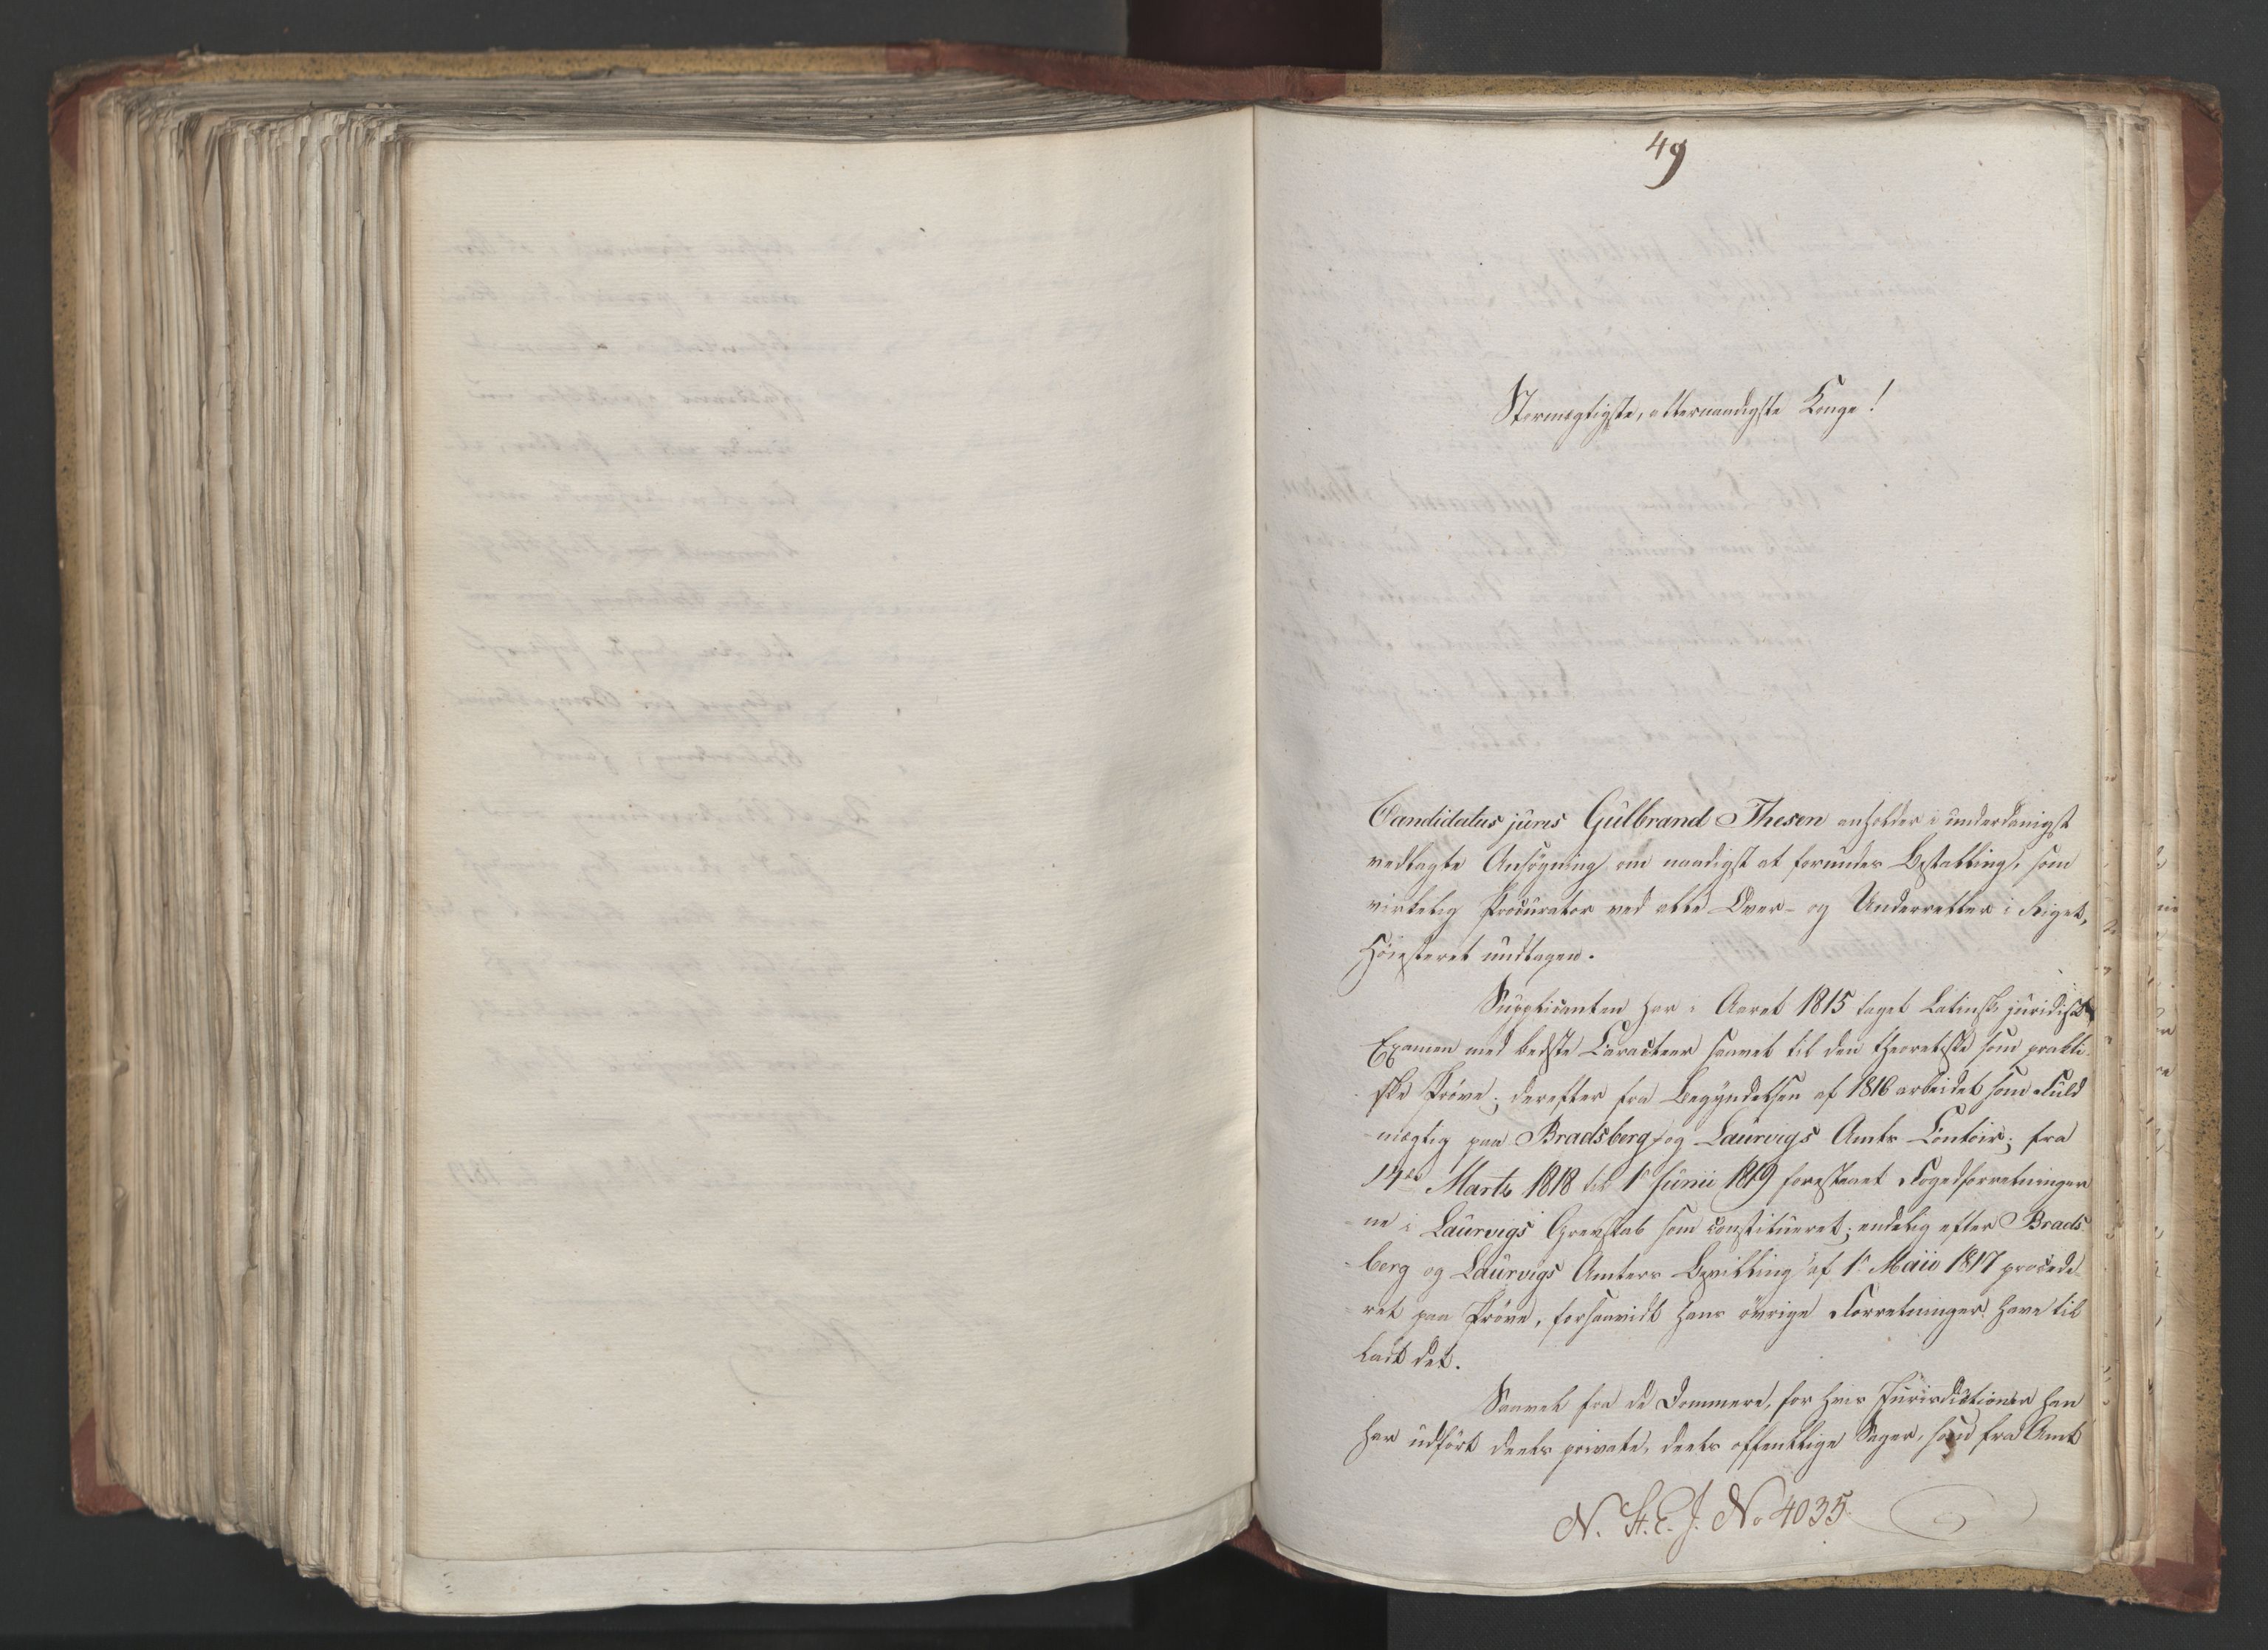 49
Stormægtigste, allernaadigste Konge!
Candidatus juris Gulbrand Thesen anholder i underdanigst
vedlagte Ansøgning om naadigst at forundes Bestalling, som
virkelig Procurator ved alle Over- og Underretter i Riget,
Høiesteret undtagen.
Supplicanten har i Aaret 1815 taget Latinsk juridisk
Examen med bedste Caracteer saavel til den theoretiske som prakti-
ske Prøve; derefter fra Begyndelsen af 1816 arbeidet som Fuld
mægtig paa Bradsberg og Laurvigs Amts Contoir; fra
14de Marts 1818 til 1e Junii 1819 forestaaet Fogedforretninger
ne i Laurvigs Grevskab som constitueret; endelig efter Brads-
berg og Laurvigs Amters Bevilling af 1e Maii 1817 procede-
ret paa Prøve, forsaavidt hans øvrige Forretninger have til
ladt det.
Saavel fra de Dommere, for hvis Jurisdictioner han
har udført deels private, deels offentlige Sager, som fra Amt
N. St. E. J. No 4035.